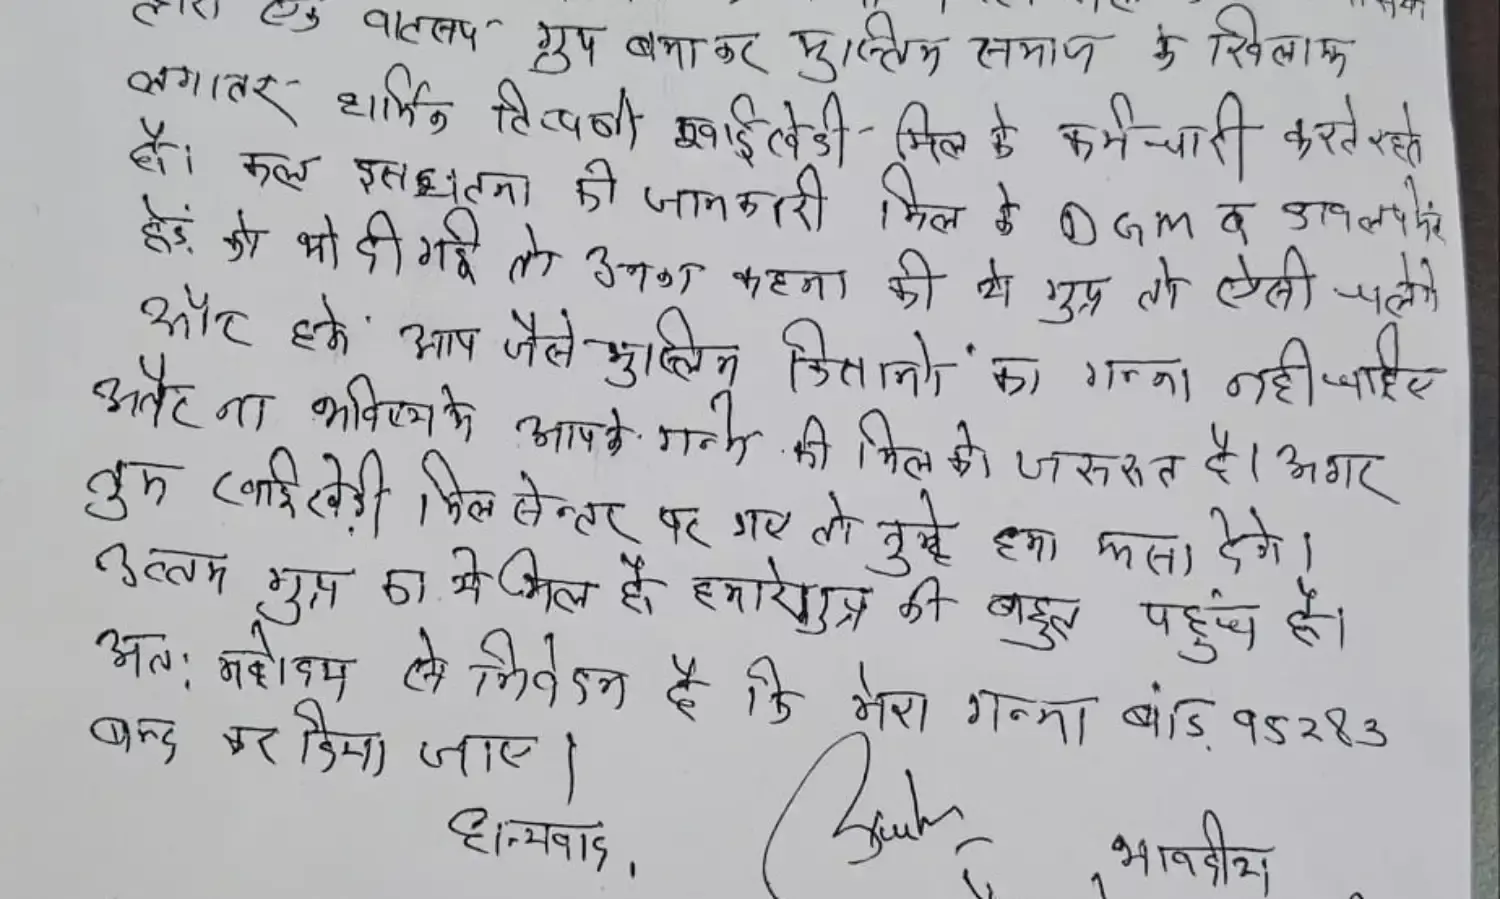 द्वारा एक वाटसप ग्रुप बनाकर मुस्लिम समाज के खिलाफ
लगातर धार्मिक टिप्पणी खाईखेडी मिल के कर्मचारी करते रहते
है। कल इस घटना की जानकारी मिल के DGM व डावलपमेंट
हेड को भी दी गई तो उनका कहना की ये ग्रुप तो ऐसी चलेगे
और हमे आप जैसे मुस्लिम किसानों का गन्ना नही चाहिए
और ना भविष्य मे आपके गन्ने की मिल को जरूरत है। अगर
तुम खाईखेड़ी मिल सेन्टर पर गए तो तुम्हे हम फसा देंगे।
उत्तम ग्रुप का ये मिल है हमारे ग्रुप की बहुत पहुंच है।
अतः महोदय से निवेदन है कि मेरा गन्ना बांड 95283
बन्द कर दिया जाए।
धन्यवाद.
भावदीय